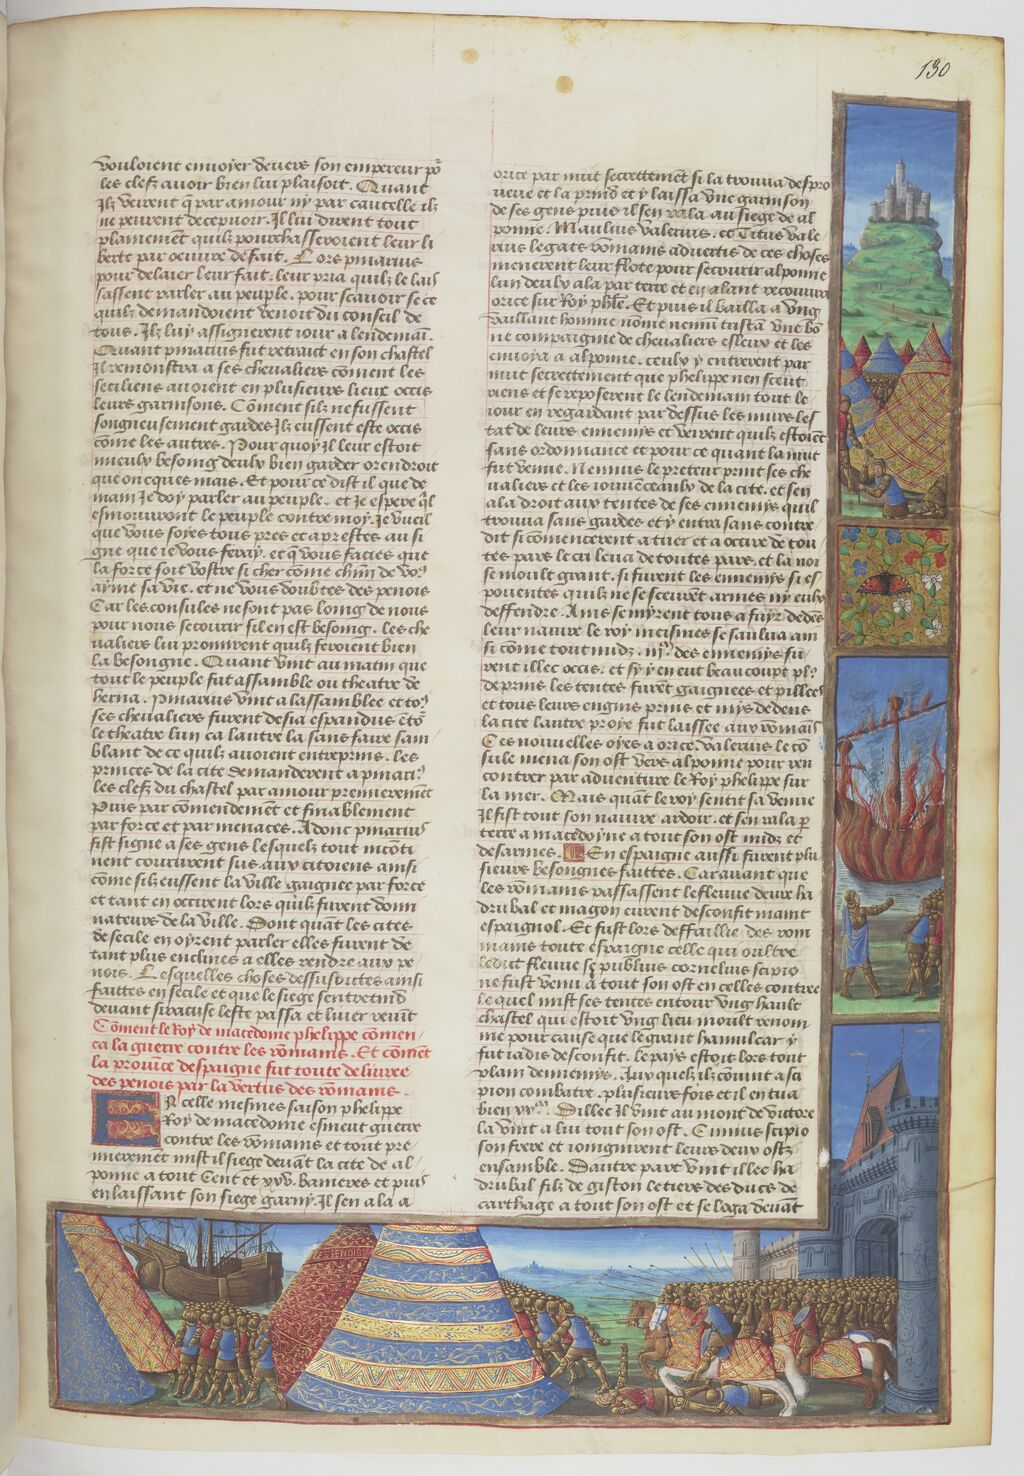 130
vouloient envoyer devers son empereur po᷑
les clefz avoir bien lui plaisoit. Quant
Ilz veirent q̄ par amour ny par cautelle ilz
ne peurent decepvoir. Il lui dirent tout
plainemēt quilz pourchassevoient leur li
berte par oeuvre de fait. Lors pinarius
pour delaier leur fait. leur pria quilz le lais
sassent parler au peuple. pour scauoir se ce
quilz demandoient venoit du conseil de
tous. Ilz luy assignerent iour a lendemaī.
Quant pinarius fut retraict en son chastel
Il remonstra a ses chevaliers cōment les
seciliens avoient en plusieurs lieux occis
leurs garnisons. Cōment silz ne fussent
songneusement gardes Ilz eussent este occis
cōme les autres. Pour quoy Il leur estoit
mieulx besoing deulx bien garder orendroit
que oncques mais. Et pour ce dist il que de
main Je doy parler au peuple. et Je espere q̄l
esmouvront le peuple contre moy. Je vueil
que vous soyes tous pres et aprestes au si
gne que ie vous feray. et q̄ vous facies que
la force soit vostre si cher come chūn de vo9
ayme sa vie. et ne vous doubtes des penois
Car les consules ne sont pas loing de nous
pour nous secourir sil en est besoing. les che
valiers lui promirent quilz feroient bien
la besongne. Quant vint au matin que
tout le peuple fut assemble ou theatre de
henna. Pinarius vint a lassamblee et to9
ses chevaliers furent desia espandus ētō
le theatre lun ca lautre la sans faire sam
blant de ce quilz avoient entreprins. les
princes de la cite demanderent a pinari9
les clefz du chastel par amour premieremēt
Puis par cōmendement et finablement
par force et par menaces. Adonc pinarius
fist signe a ses gens lesquelz tout incōti
nent coururent sus aux citoiens ainsi
cōme silz eussent la ville gaignee par force
et tant en occirent lors quilz furent domi
nateurs de la ville. Dont quant les cites
de secile en oyrent parler elles furent de
tant plus enclines a elles rendre aux pe
nois. Lesquelles choses dessusdittes ainsi
faittes en secile et que le siege sentretind
devant siracuse leste passa et liuer revīt
Cōment le Roy de macedone phelippe cōmen
ca la guerre contre les rōmains. Et cōmēt
la prouīce despaigne fut toute delivree
des penois par la vertus des rōmains.
En celle mesmes saison phelippe
Roy de macedonie esmeut guerre
contre les rōmains et tout pre
mierement mist il siege devāt la cite de al
ponne a tout Cent et xxv. banieres et puis
en laissant son siege garny Il sen ala a
orice par nuit secrettemēt si la trouva despro
veue et la prīnd et y laissa vne garnison
de ses gens puis il sen rala au siege de al
ponne. Maulius valerius. et Titus vale
rius legats rōmains advertis de ces choses
menerent leur flote pour secourir alponne
lun deulx ala par terre et en alant recouvra
orice sur Roy phē. Et puis il bailla a vng
vaillant homme nōme nemiī tristā vne bō
ne compaignie de chevaliers esleux et les
envoya a alponne. ceulx y entrerent par
nuit secrettement que phelippe nen sceut
riens et se reposerent le lendemain tout le
iour en regardant par dessus les murs les
tat de leurs ennemys et veirent quilz estoiēt
sans ordonnance et pour ce quant la nuit
fut venue. Nennius le preteur print ses che
valiers et les iouvēceaulx de la cite. et sen
ala droit aux tentes de ses ennemys quil
trouva sans gardes et y entra sans contre
dit si comencerent a tuer et a occire de tou
tes pars le cri leva de toutes pars. et la noi
se moult grant. si furent les ennemys si es
poventes quilz ne se sceurēt armes ny eulx
deffendre. Ains se myrent tous a fuyr dedēs
leur navire le roy meismes se saulva ain
si cōme tout nudz. iijm. des ennemys fu
rent illec occis. et sy y en eut beaucoupt pl9
de prins les tentes furēt gaignees et pillees
et tous leurs engins prins et mys dedens
la cite lautre proye fut laissee aux rōmais
Ces nouvelles oyes a orice. valerius le cō
sule mena son ost vers alponne pour ren
contrer par adventure le Roy phelippe sur
la mer. Mais quāt le roy sentit sa venue
Il fist tout son navire ardoir. et sen rala p
terre a macedoyne a tout son ost nudz et
desarmes. En espaigne aussi furent plu
sieurs besongnes faittes. Car avant que
les rōmains passassent le fleuve deure ha
drubal et magon eurent desconfit maint
espaignol. Et fust lors deffaillie des rom
mains toute espaigne celle qui oultre
ledit fleuve se publius cornelius scipio
ne fust venu a tout son ost en celles contrees
lequel mist ses tentes entour vng hault
chastel qui estoit vng lieu moult renom
me pour cause que le grant hamilcar y
fut iadis desconfit. le pays estoit lors tout
plain dennemys. Aux quelz il cōvint a sci
pion combatre. plusieurs fois et il en tua
bien xxm. Dillec Il vint au mont de victore
la vint a lui tout son ost. Cinnus scipio
son frere et ioingnirent leurs deux ostz
ensamble. Dautre part vint illec ha
drubal filz de giston le tiers des ducs de
carthage a tout son ost et se loga devāt
LES PENOIS